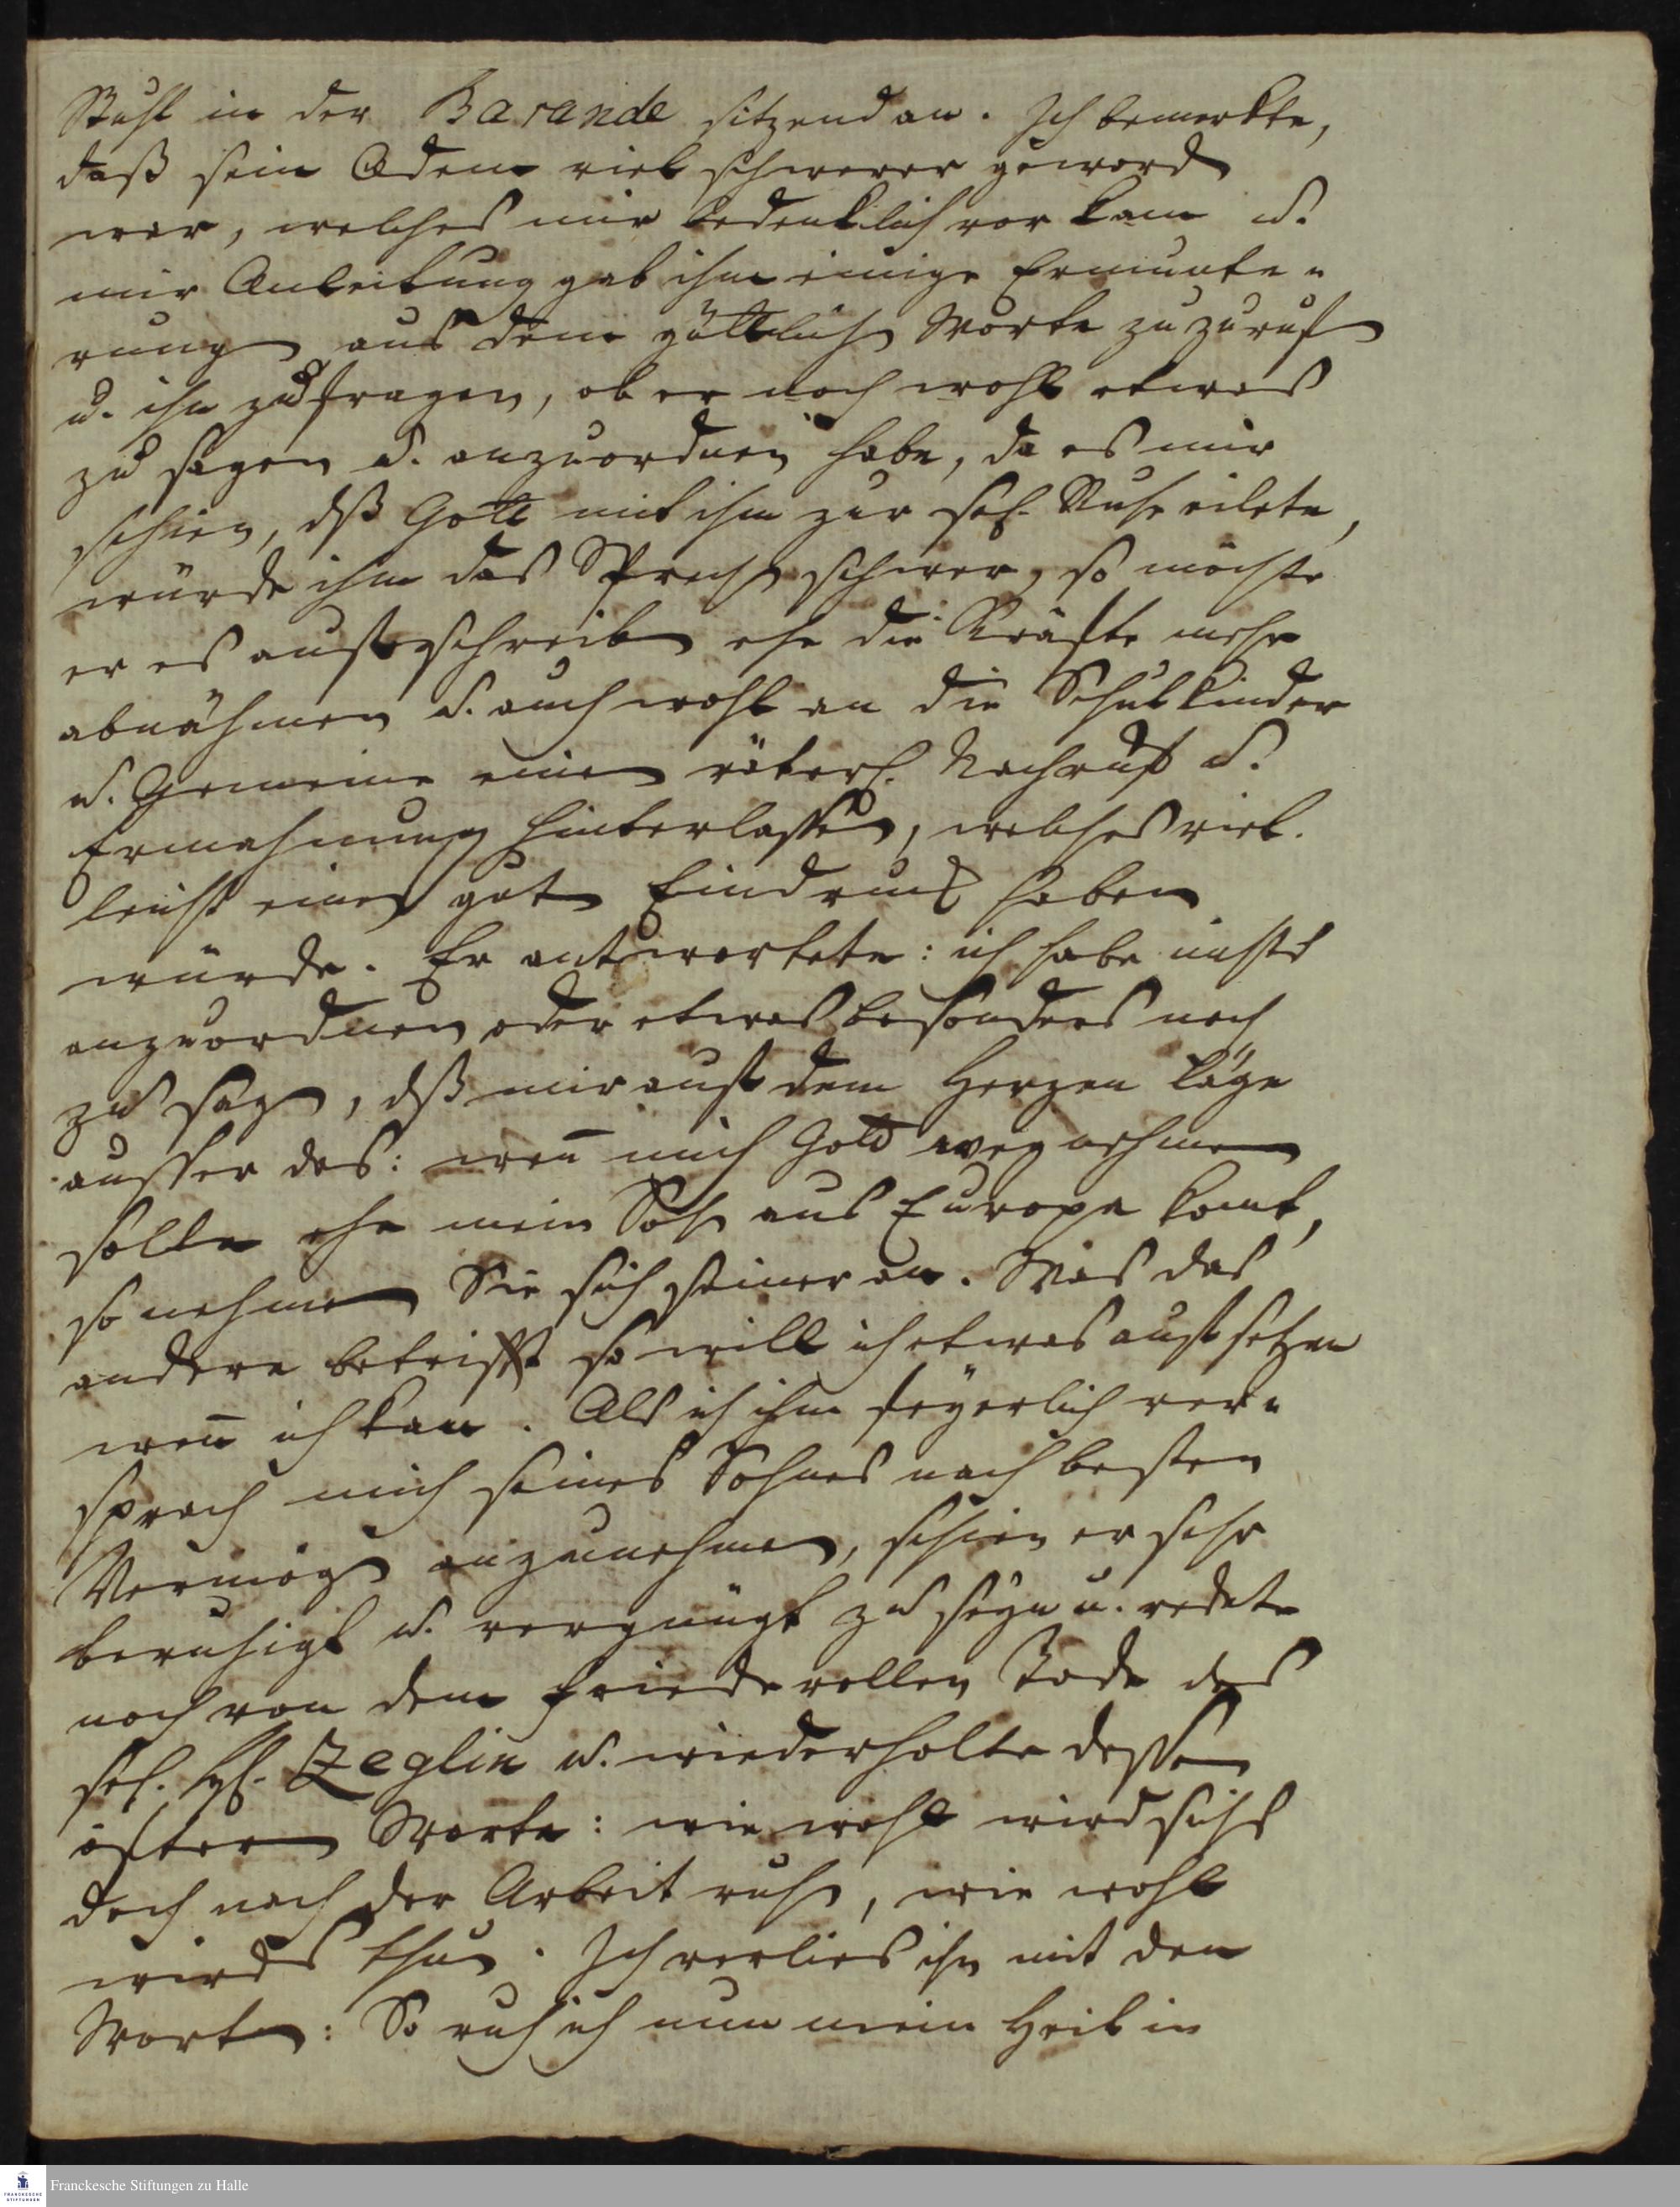 Stuhl in der Barande sitzend an. Ich bemerkte,
daß sein Odem viel schwerer geword
war, welches mir bedenklich vor kam u.
mir Anleitung gab ihm einige Ermunte-
rung aus dem göttlich Worte zuzuruf
u. ihn zu fragen, ob er noch wohl etwas
zu sagen u. anzuordnen habe, da es mir
schien, dß Gott mit ihm zur sel. Ruhe eilete,
würde ihm das Sprech schwer, so möchte
er es aufschreib ehe die Kräfte mehr
abnähmen u. auch wohl an die Schulkinder
u. Gemeine einen väterl. Nachruf u.
Ermahnung hinterlassen, welches viel-
leicht einen gut Eindruck haben
würde. Er antwortete: ich habe nichts
anzuordnen oder etwas besonders noch
zu sag, dß mir auf dem Herzen läge
ausser das: wen̄ mich Gott wegnehmen
sollte ehe mein Soh aus Europa komt,
so nehmen Sie sich seiner an. Was das
andere betrifft so will ich etwas aufsetzen
wen̄ ich kan. Als ich ihm feyerlich ver-
sprach mich seines Sohnes nach besten
Vermög anzunehmen, schien er sehr
beruhigt u. vergnügt zu seyn u. redete
noch von dem friedevollen Tode des
sel. H. Zeglin u. wiederholte dessen
öftern Worte: wie wohl wird sichs
doch nach der Arbeit ruh, wie wohl
wirds thun. Ich verlies ihn mit den
Worten: So ruh ich nun mein Heil in
Franckesche Stiftungen zu Halle